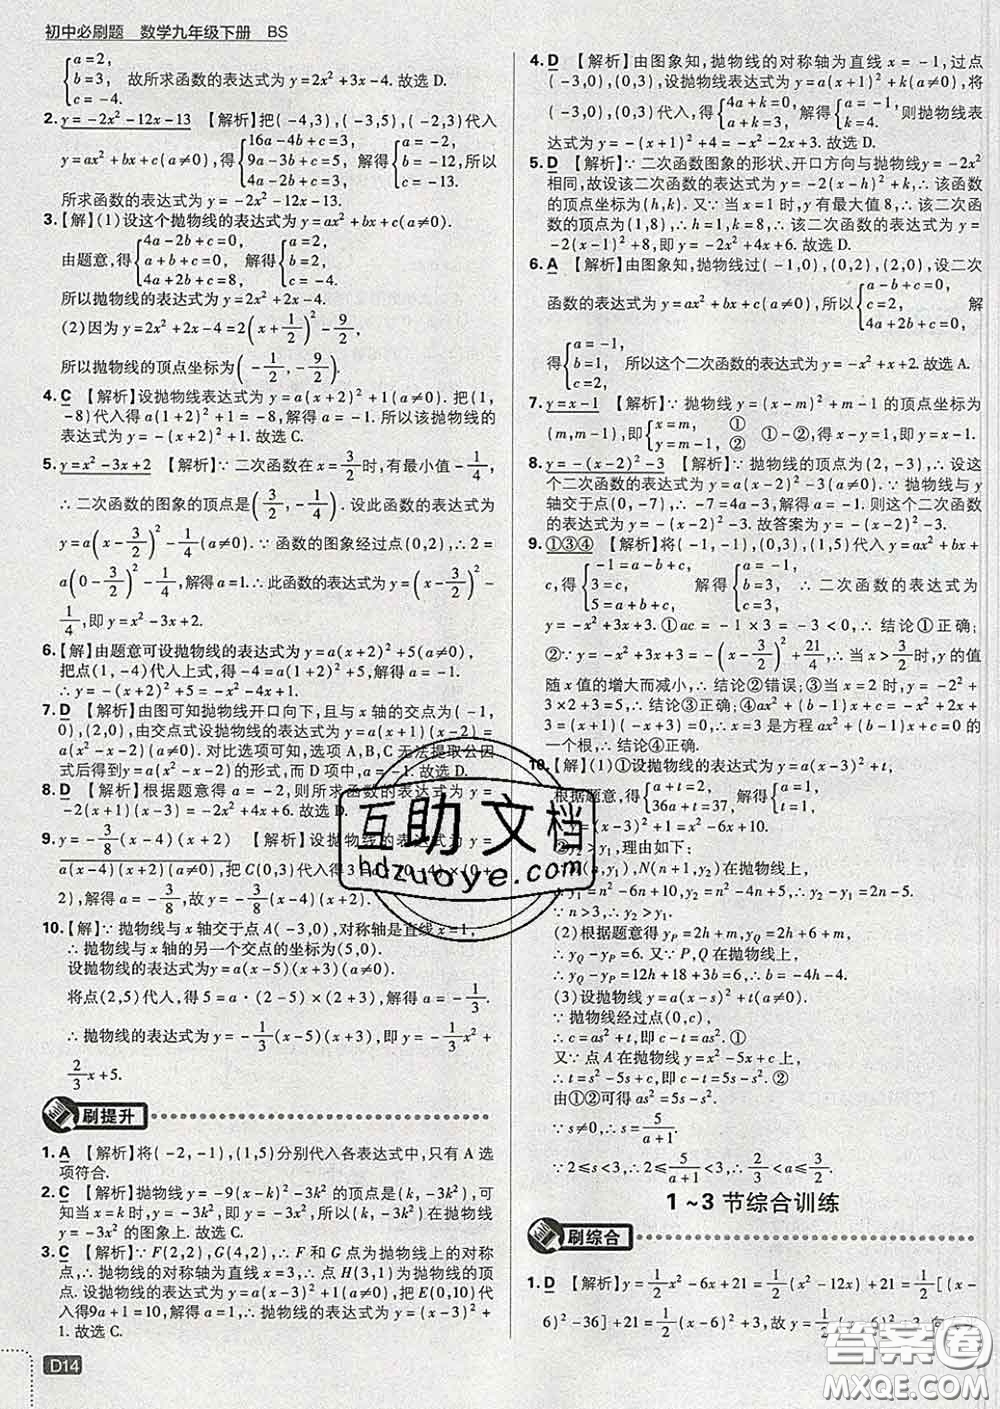 初中必刷题 数学九年级下册 BS
{a=2,
b=3, 故所求函数的表达式为y=2x²+3x-4.故选D.
c=-4.
2. y=-2x²-12x-13 【解析】把(-4,3),(-3,5),(-2,3)代入
y=ax²+bx+c(a≠0),得{16a-4b+c=3, 9a-3b+c=5, 4a-2b+c=3, 解得{a=-2, b=-12,所以 c=-13,
所求函数的表达式为y=-2x²-12x-13.
3.【解】(1)设这个抛物线的表达式为y=ax²+bx+c(a≠0).
由题意,得{4a-2b+c=0, a+b+c=0, 4a+2b+c=8, 解得{a=2, b=2, c=-4,
所以抛物线的表达式为y=2x²+2x-4.
(2)因为y=2x²+2x-4=2(x+1/2)²-9/2,
所以抛物线的顶点坐标为(-1/2,-9/2).
4. C 【解析】设抛物线表达式为y=a(x+2)²+1(a≠0).把(1,
-8)代入得a(1+2)²+1=-8,解得a=-1.所以该抛物线的
表达式为y=-(x+2)²+1.故选C.
5. y=x²-3x+2 【解析】∵二次函数在x=3/2时,有最小值-1/4,
∴二次函数的图象的顶点是(3/2,-1/4).设此函数的表达式为
y=a(x-3/2)²-1/4(a≠0).∵函数的图象经过点(0,2),∴2=
a(0-3/2)²-1/4,解得a=1.∴此函数的表达式为y=(x-3/2)²-
1/4,即y=x²-3x+2.
6.【解】由题意可设抛物线的表达式为y=a(x+2)²+5(a≠0),
把点(1,-4)代入上式,得-4=a(1+2)²+5,解得a=-1.
∴y=-(x+2)²+5=-x²-4x+1.
7. D 【解析】由图可知抛物线开口向下,且与x轴的交点为(-1,
0),(2,0),由交点式设抛物线的表达式为y=a(x+1)(x-2)=
a(x²-x-2)(a≠0).对比选项可知,选项A,B,C无法提取公因
式后得到a(x²-x-2)的形式,而D项中,a=-1.故选D.
8. D 【解析】根据题意得a=-2,则所求函数的表达式为y=
-2(x+1)(x-3)=-2x²+4x+6.故选D.
9. y=-3/8(x-4)(x+2) 【解析】设抛物线的表达式为y=
a(x-4)(x+2)(a≠0).把C(0,3)代入得3=a(0-4)×(0+
2),解得a=-3/8,所以y=-3/8(x-4)(x+2).
10.【解】∵抛物线与x轴交于点A(-3,0),对称轴是直线x=1,
∴抛物线与x轴的另一个交点的坐标为(5,0).
设抛物线的表达式为y=a(x-5)(x+3)(a≠0).
将点(2,5)代入,得5=a·(2-5)×(2+3),解得a=-1/3.
∴抛物线的表达式为y=-1/3(x-5)(x+3),即y=-1/3x²+
2/3x+5.
刷提升
1. A 【解析】将(-2,-1),(1,5)分别代入各表达式中,只有A选
项符合.
2. C 【解析】抛物线y=-9(x-k)²-3k²的顶点是(k,-3k²),可
知当x=k时,y=-3k²,即(k,-3k²)在抛物线y=-3x²
的图象上.故选C.
3. C 【解析】∵F(2,2),G(4,2),∴F和G点为抛物线上的对称
点,∴抛物线的对称轴为直线x=3,∴点H(3,1)为抛物线的顶
点.设抛物线的表达式为y=a(x-3)²+1(a≠0),把E(0,10)代
入得9a+1=10,解得a=1,∴抛物线的表达式为y=(x-3)²+
1.故选C.
D14
4. D 【解析】由图象知,抛物线的对称轴为直线x=-1,过点
(-3,0),(0,3),设抛物线表达式为y=a(x+1)²+k(a≠0),将
(-3,0),(0,3)代入,得{4a+k=0, a+k=3, 解得{a=-1, k=4, 则抛物线表
达式为y=-(x+1)²+4=-x²-2x+3.故选D.
5. D 【解析】∵二次函数图象的形状、开口方向与抛物线y=-2x²
相同,故设该二次函数的表达式为y=-2(x-h)²+k,∴该函数
的顶点坐标为(h,k).又∵当x=1时,y有最大值8,∴该函数
的顶点为(1,8),∴h=1,k=8,∴该二次函数的表达式为y=
-2(x-1)²+8,即y=-2x²+4x+6.故选D.
6. A 【解析】由图象知,抛物线过(-1,0),(0,2),(2,0),设二次
函数的表达式为y=ax²+bx+c(a≠0),所以{a-b+c=0, c=2, 4a+2b+c=0, 解
得{a=-1, b=1, c=2, 所以这个二次函数的表达式为y=-x²+x+2.故选A.
7. y=x-1 【解析】∵抛物线y=(x-m)²+m-1的顶点坐标为
(m,m-1),即{x=m, ① y=m-1, ② ①-②,得x-y=1,即y=x-1.
8. y=-(x-2)²-3 【解析】∵抛物线的顶点为(2,-3),∴设这
个二次函数的表达式为y=a(x-2)²-3(a≠0).∵抛物线与y
轴交于点(0,-7),∴-7=4a-3,解得a=-1.则这个二次函数
的表达式为y=-(x-2)²-3.故答案为y=-(x-2)²-3.
9. ①③④ 【解析】将(-1,-1),(0,3),(1,5)代入y=ax²+bx+
c,得{-1=a-b+c, 3=c, 5=a+b+c, 解得{a=-1, b=3, c=3, ∴二次函数的表达式为
y=-x²+3x+3.①ac=-1×3=-3<0,∴结论①正确;
②∵y=-x²+3x+3=-(x-3/2)²+21/4,∴当x>3/2时,y的值
随x值的增大而减小,∴结论②错误;③当x=2时,y=-2²+
3×2+3=5,∴结论③正确;④ax²+(b-1)x+c=-x²+2x+
3=(x+1)(-x+3)=0,∴x=3是方程ax²+(b-1)x+c=0的
一个根,∴结论④正确.
10.【解】(1)①设抛物线的表达式为y=a(x-3)²+t,
根据题意,得{a+t=2, 36a+t=37, 解得{a=1, t=1,
∴y=(x-3)²+1=x²-6x+10.
②y₂>y₁,理由如下:
∵M(n,y₁),N(n+1,y₂)在抛物线上,
∴y₁=n²-6n+10,y₂=n²-4n+5,∴y₂-y₁=2n-5.
∵n>3,∴y₂>y₁.
(2)根据题意得yP=2h+m,yQ=2h+6+m,
∴yQ-yP=6.又∵P,Q在抛物线上,
∴yQ-yP=12h+18+3b=6,∴b=-4h-4.
(3)设抛物线为y=a(x-s)²+t(a≠0).
∵抛物线经过点(0,c),
∴c=as²+t,即c-t=as².①
又∵点A在抛物线y=x²-5x+c上,
∴t=s²-5s+c,即c-t=5s-s².②
由①②可得as²=5s-s²,
∵s≠0,∴s=5/(a+1).
∵2≤s<3,∴2≤5/(a+1)<3,∴2/3<a≤3/2.
1~3节综合训练
刷综合
1. D 【解析】y=1/2x²-6x+21=1/2(x²-12x)+21=1/2[(x-
6)²-36]+21=1/2(x-6)²+3,故y=1/2(x-6)²+3
互助文档
hdzuoye.com
答案圈
MXQE.COM